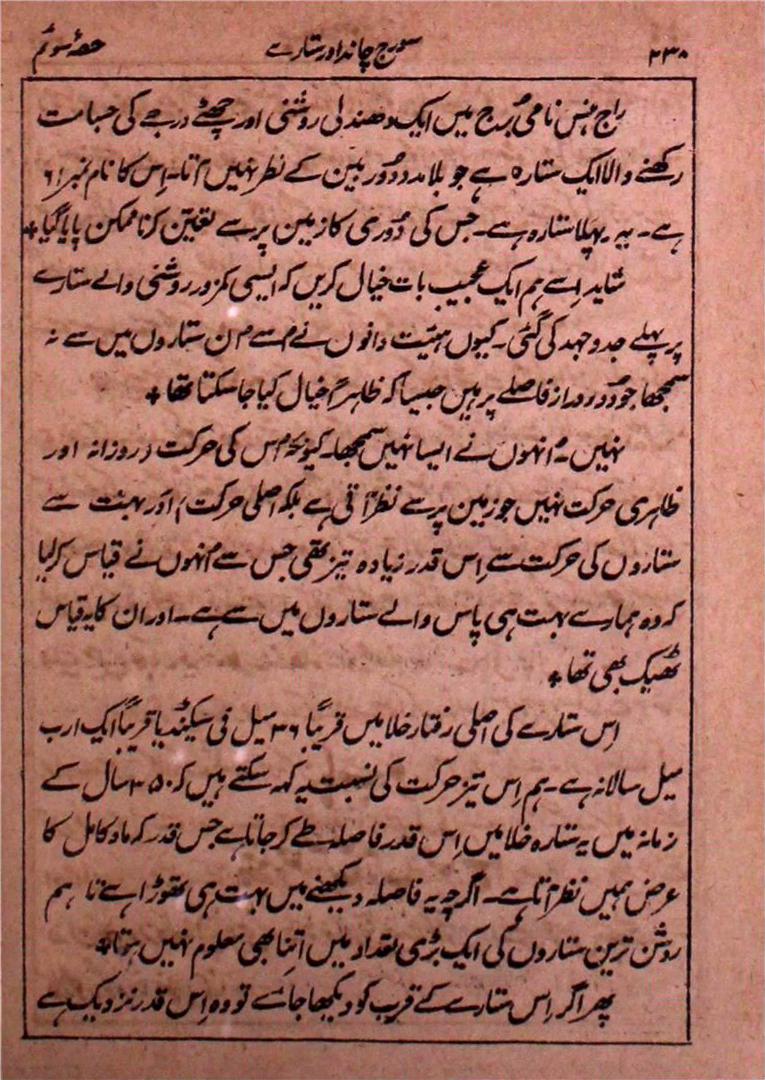 ۲۳۰ سورج چاند اور ستارے حصۂ سوئم
راج ہنس نامی بُرج میں ایک دھندلی روشنی اور چھٹے درجے کی جسامت
رکھنے والا ایک ستارہ ہے جو بلا مدد دُوربین کے نظر نہیں آتا۔ اِس کا نام نمبر ۶۱
ہے۔ یہ پہلا ستارہ ہے۔ جس کی دُوری کا زمین پر سے تعیّن کرنا ممکن پایا گیا٭
شاید اِسے ہم ایک عجیب بات خیال کریں کہ ایسی کمزور روشنی والے ستارے
پر پہلے جدوجہد کی گئی۔ کیوں ہیئت دانوں نے اُسے اُن ستاروں میں سے نہ
سمجھا جو دُور دراز فاصلے پر ہیں جیسا کہ ظاہراً خیال کیا جا سکتا تھا٭
نہیں۔ اُنہوں نے ایسا نہیں سمجھا۔ کیونکہ اُس کی حرکت (روزانہ اور
ظاہری حرکت نہیں جو زمین پر سے نظر آتی ہے بلکہ اصلی حرکت) اَور بہت سے
ستاروں کی حرکت سے اِس قدر زیادہ تیز تھی جس سے اُنہوں نے قیاس کر لیا
کہ وہ ہمارے بہت ہی پاس والے ستاروں میں سے ہے۔ اور ان کا یہ قیاس
ٹھیک بھی تھا٭
اِس ستارے کی اصلی رفتار خلا میں قریباً ۳۶ میل فی سیکنڈ یا قریباً ایک ارب
میل سالانہ ہے۔ ہم اِس تیز حرکت کی نسبت یہ کہہ سکتے ہیں کہ ۳۵۰ سال کے
زمانہ میں یہ ستارہ خلا میں اِس قدر فاصلہ طے کر جاتا ہے جس قدر کہ ماہ کامل کا
عرض ہمیں نظر آتا ہے۔ اگرچہ یہ فاصلہ دیکھنے میں بہت ہی تھوڑا ہے تا ہم
روشن ترین ستاروں کی ایک بڑی تعداد میں اتنا بھی معلوم نہیں ہوتا٭
پھر اگر اِس ستارے کے قرب کو دیکھا جائے تو وہ اِس قدر نزدیک ہے